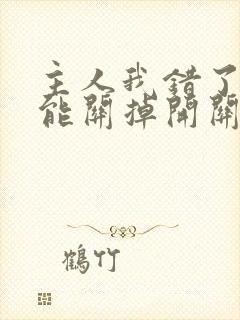 主人我错了
能關掉開關
鶴竹